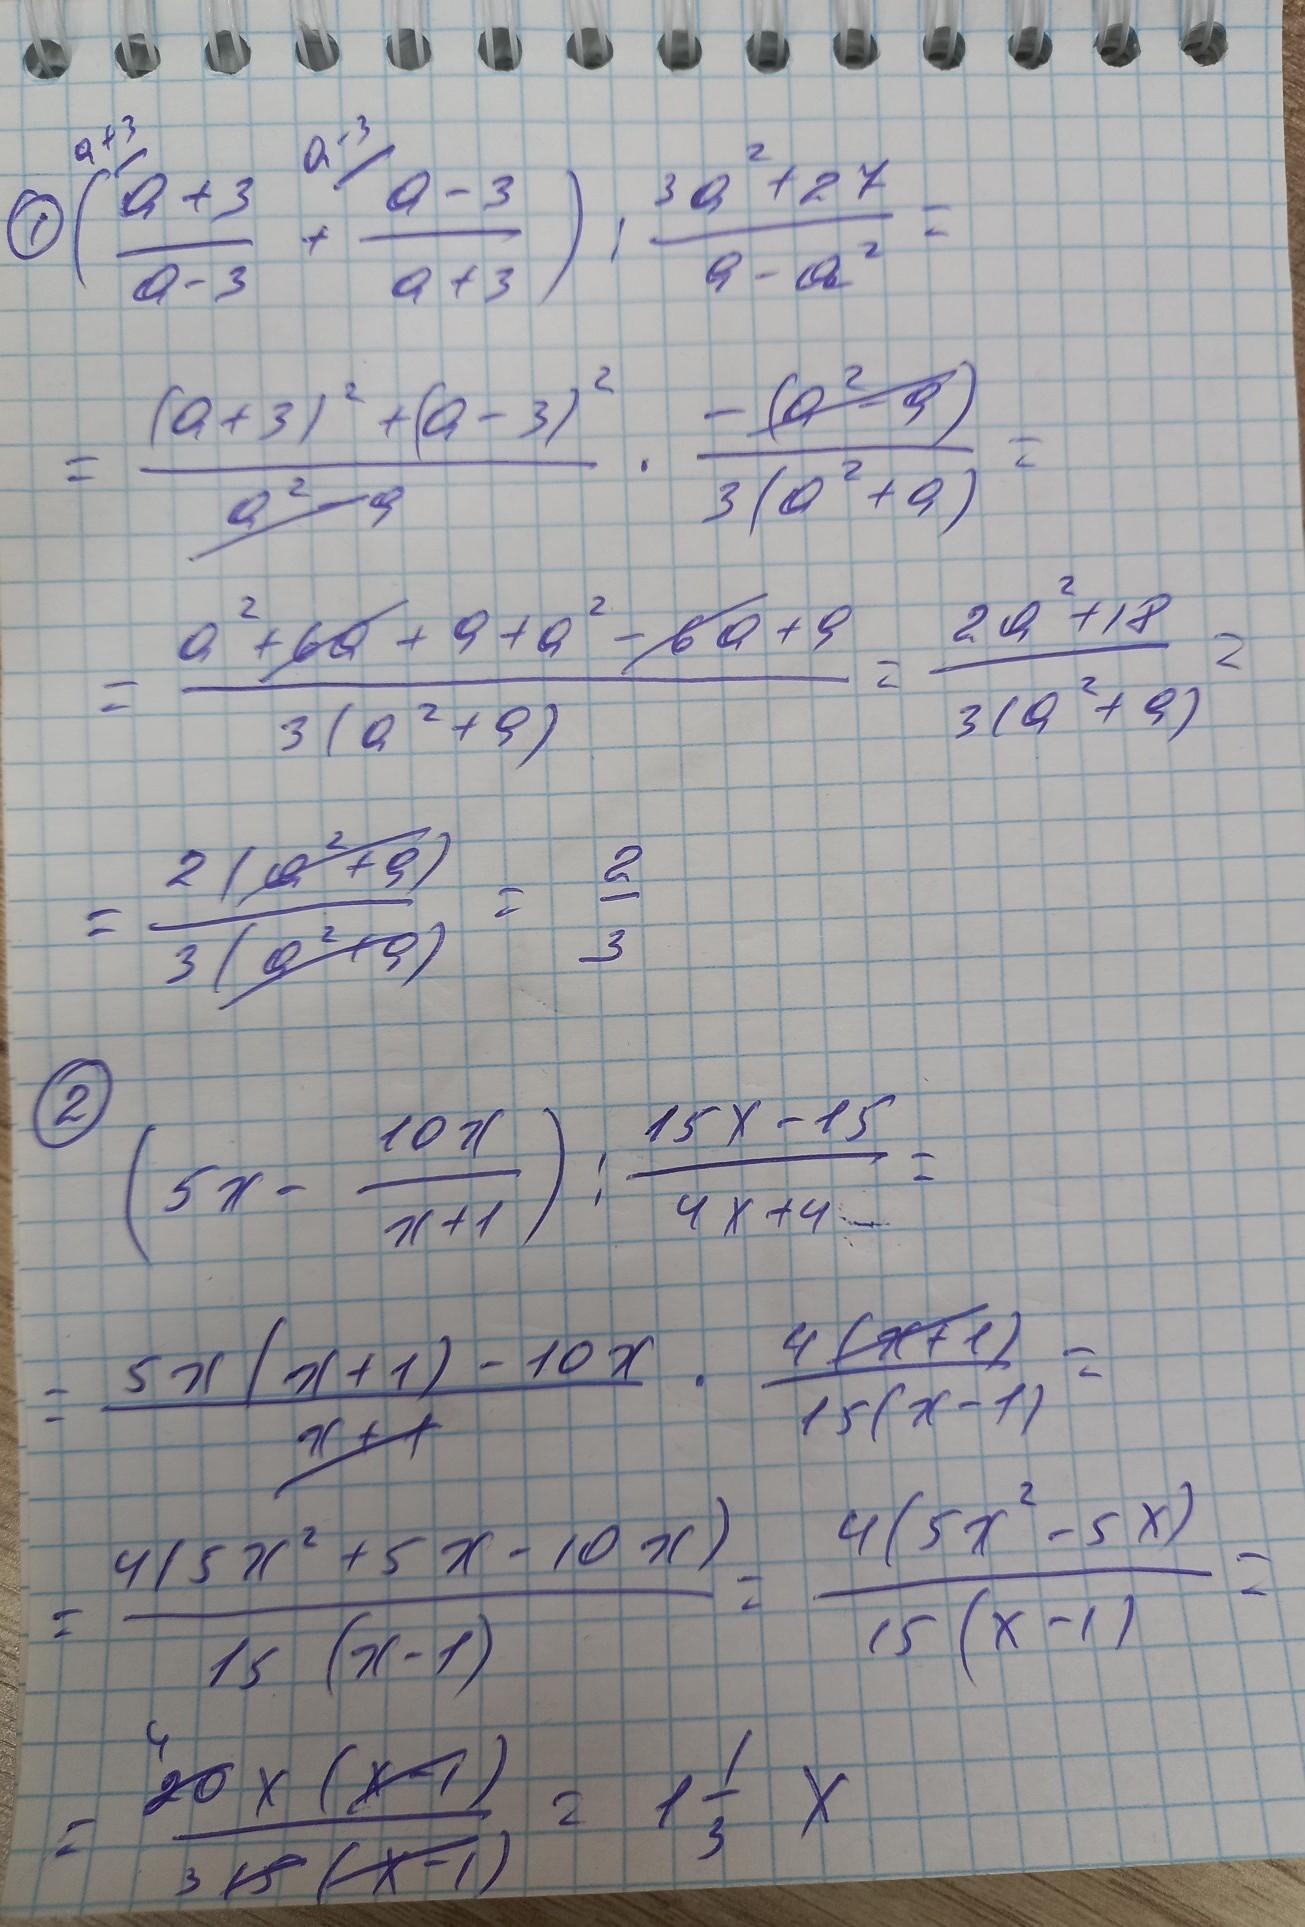 a+3 a-3
① ( (a+3)/(a-3) + (a-3)/(a+3) ) : (3a²+27)/(9-a²) =
= ((a+3)²+(a-3)²)/(a²-9) · (-(a²-9))/(3(a²+9)) =
= (a²+6a+9+a²-6a+9)/(3(a²+9)) = (2a²+18)/(3(a²+9)) =
= (2(a²+9))/(3(a²+9)) = 2/3
②
( 5x - 10x/(x+1) ) : (15x-15)/(4x+4) =
= (5x(x+1)-10x)/(x+1) · (4(x+1))/(15(x-1)) =
= (4(5x²+5x-10x))/(15(x-1)) = (4(5x²-5x))/(15(x-1)) =
4
= (20x(x-1))/(3 15(x-1)) = 1 1/3 x